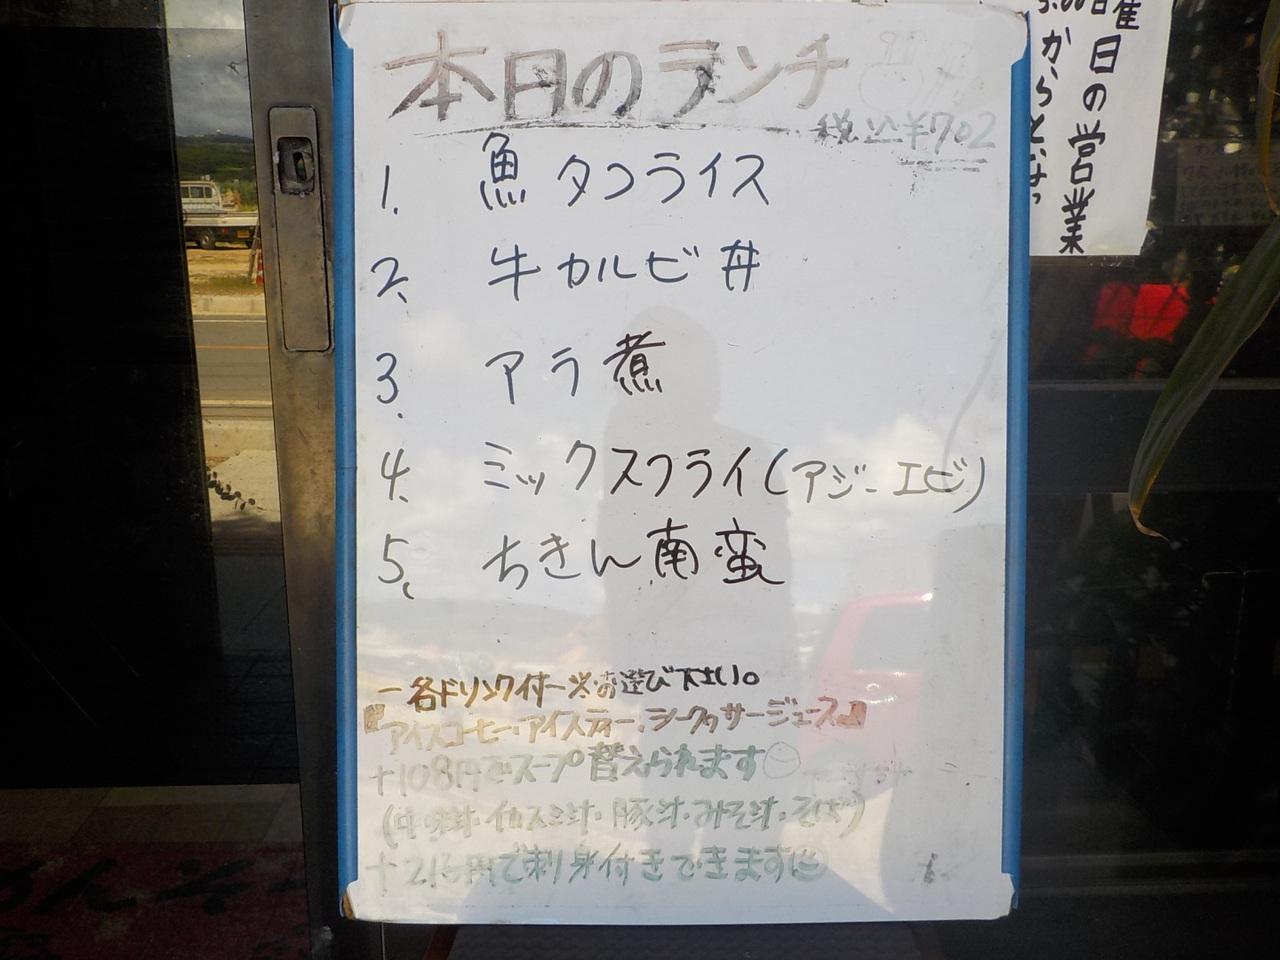 本日のランチ
税込¥702
1. 魚タコライス
2、牛カルビ丼
3. アラ煮
4. ミックスフライ(アジ・エビ)
5、ちきん南蛮
ー各ドリンク付ー※お選び下さい。
『アイスコーヒー・アイスティー・シークヮサージュース』
+108円でスープ替えられます
イカスミ汁・豚汁・みそ汁・そば)
+216円で刺身付きできます
曜日の営業
からとなっ